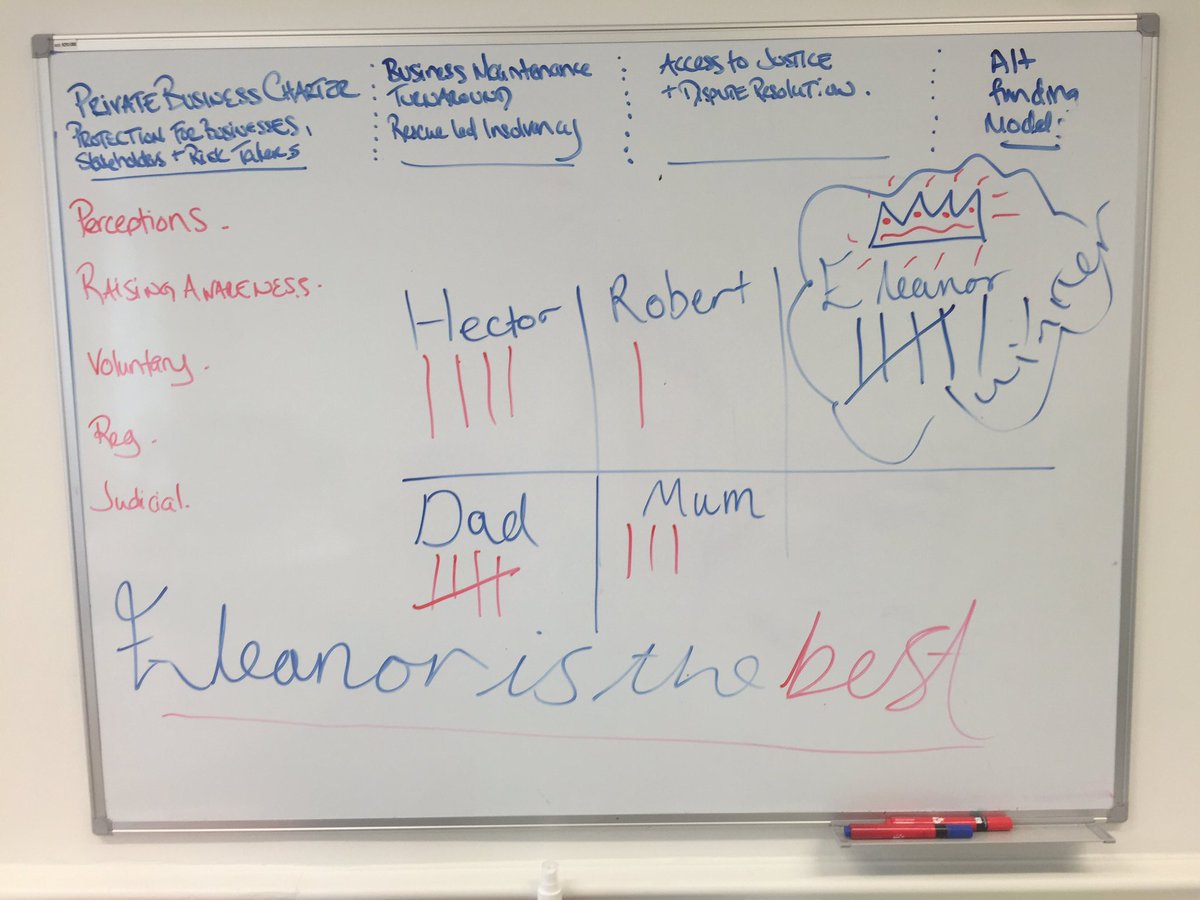 PRIVATE BUSINESS CHARTER
PROTECTION FOR BUSINESSES,
Stakeholders + Risk Takers
Business Maintenance
TURNAROUND
Rescue led Insolvency
ACCESS TO JUSTICE
+ DISPUTE RESOLUTION.
Alt
funding
Model:
Perceptions.
RAISING AWARENESS.
Voluntary.
Reg.
Judicial.
Hector
Robert
Eleanor
winner
Dad
Mum
Eleanor is the best